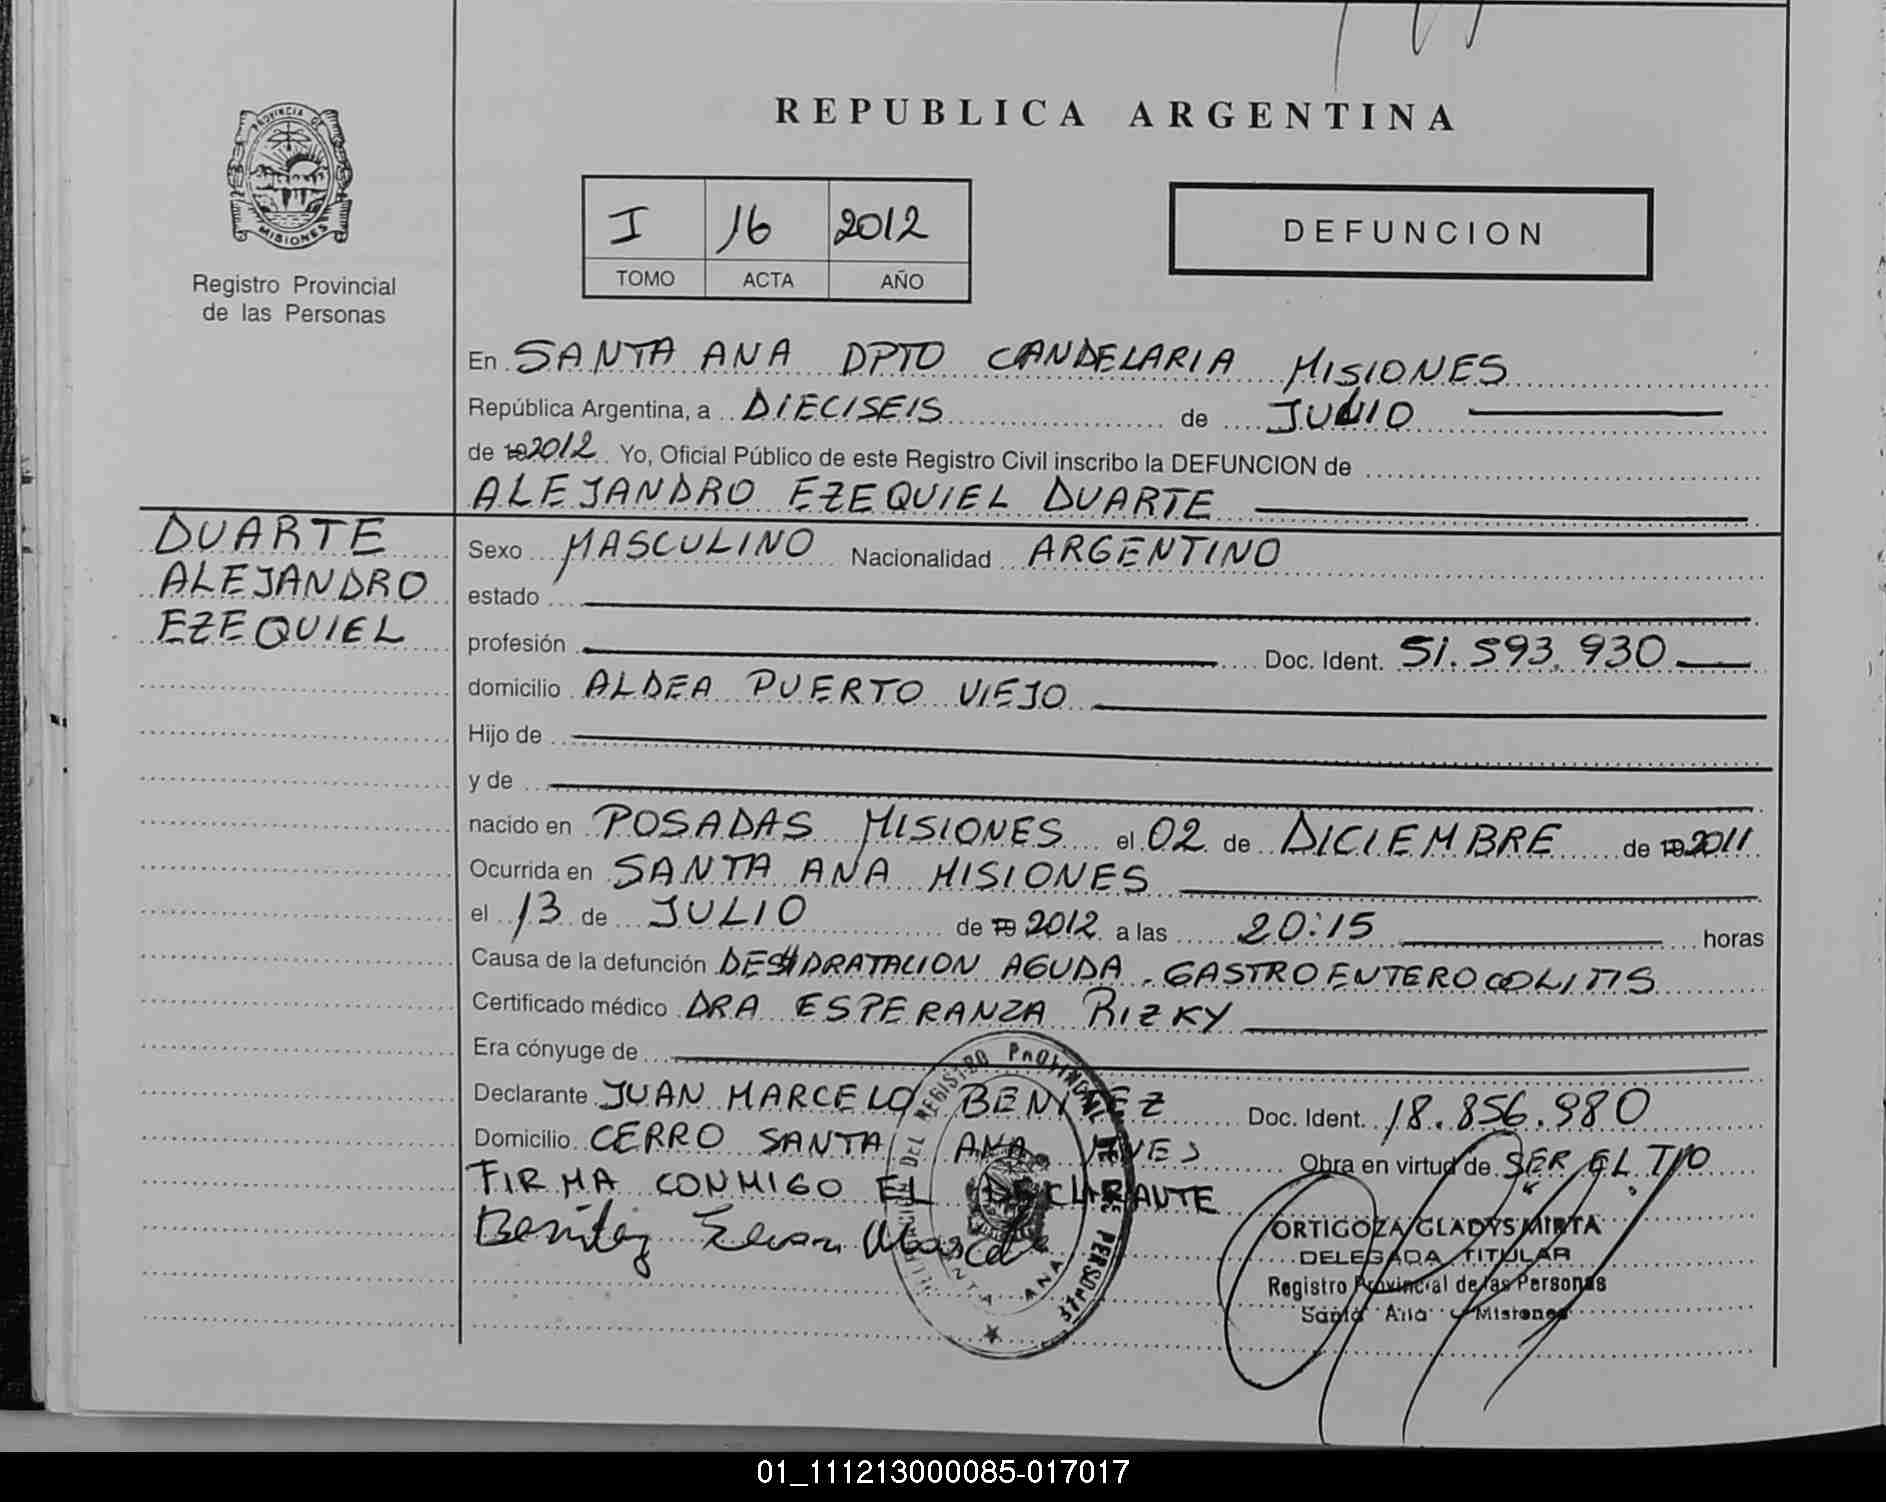 REPUBLICA ARGENTINA
PROVINCIA DE
MISIONES
Registro Provincial
de las Personas
I 16 2012
TOMO ACTA AÑO
DEFUNCION
En SANTA ANA DPTO CANDELARIA MISIONES
República Argentina, a DIECISEIS de JULIO
de 19 2012 Yo, Oficial Público de este Registro Civil inscribo la DEFUNCION de
ALEJANDRO EZEQUIEL DUARTE
DUARTE
ALEJANDRO
EZEQUIEL
Sexo MASCULINO Nacionalidad ARGENTINO
estado
profesión Doc. Ident. 51.593.930
domicilio ALDEA PUERTO VIEJO
Hijo de
y de
nacido en POSADAS MISIONES el 02 de DICIEMBRE de 19 2011
Ocurrida en SANTA ANA MISIONES
el 13 de JULIO de 19 2012 a las 20:15 horas
Causa de la defunción DESHIDRATACION AGUDA. GASTROENTEROCOLITIS
Certificado médico DRA ESPERANZA RIZKY
Era cónyuge de
Declarante JUAN MARCELO BENITEZ Doc. Ident. 18.856.980
Domicilio CERRO SANTA ANA MNES Obra en virtud de SER EL TIO
FIRMA CONMIGO EL DECLARANTE
Benitez Marcelo
DEL REGISTRO PROVINCIAL DE LAS PERSONAS
SANTA ANA
ORTIGOZA GLADYS MIRTA
DELEGADA TITULAR
Registro Provincial de las Personas
Santa Ana - Misiones
01_111213000085-017017